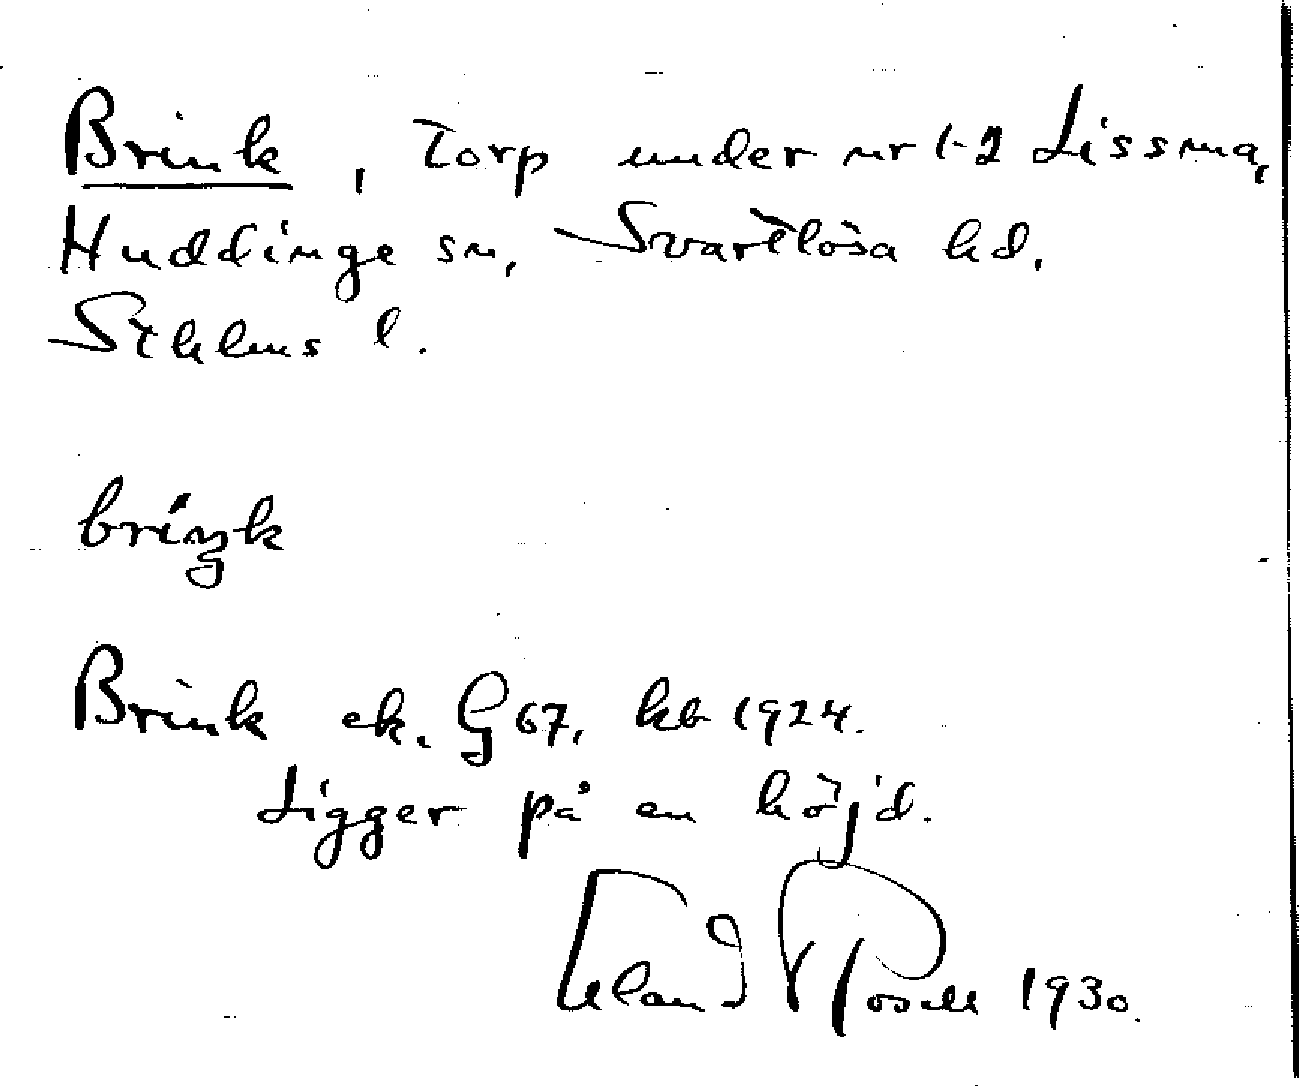 Brink, Torp under nr 1-2 Lissma,
Huddinge sn, Svartlösa hd,
Sthlms l.
briŋk
Brink ek. G 67, kb 1924.
Ligger på en höjd.
1930.